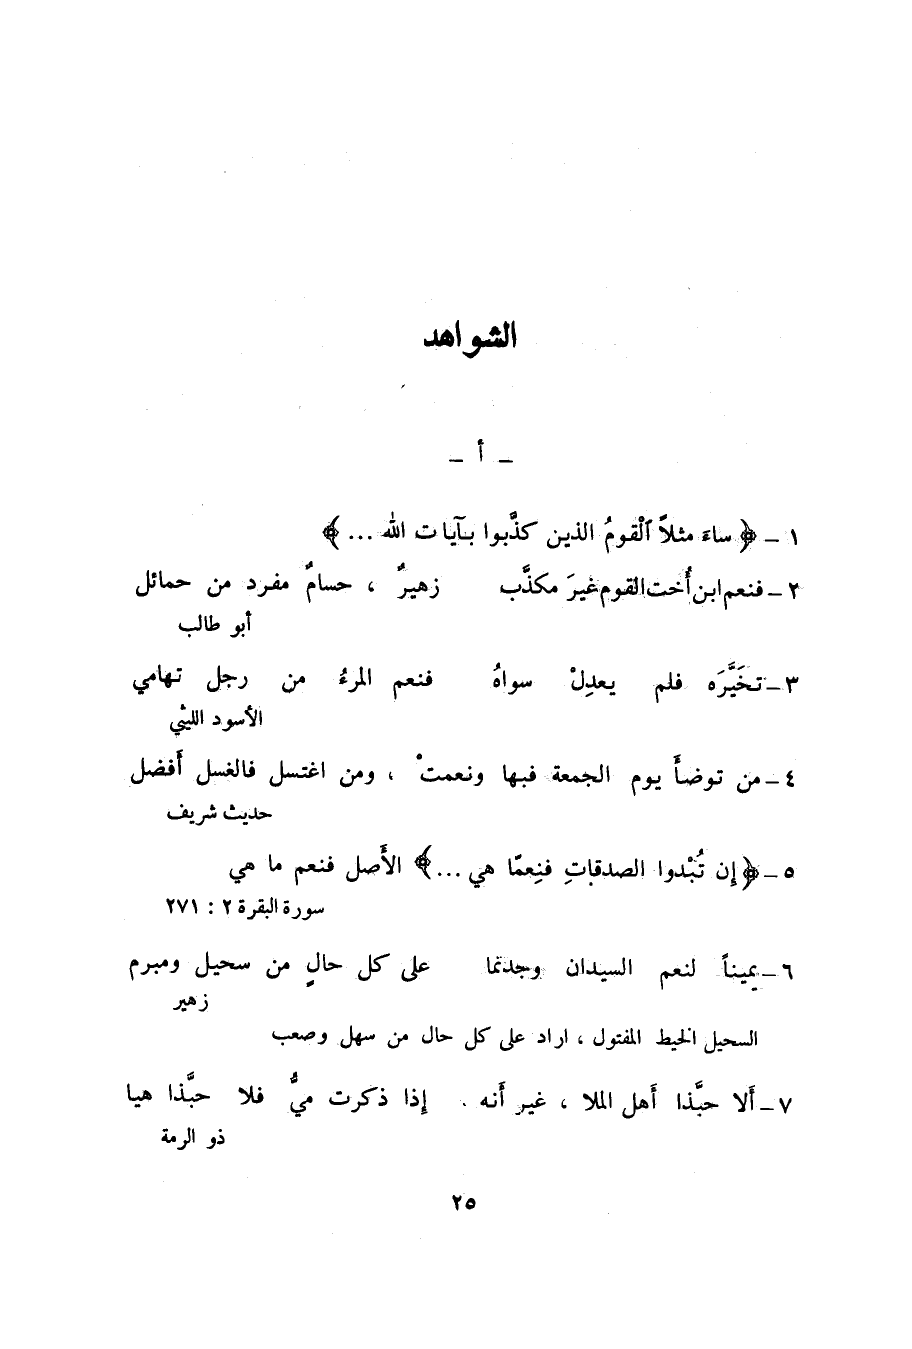 الشواهد
ـ أ ـ
١ ـ ﴿ ساءَ مثلاً ٱلْقومُ الذين كذَّبوا بآيات الله ... ﴾
٢ ـ فنعم ابن أُخت القوم غيرَ مكذَّب زهيرٌ ، حسامٌ مفرد من حمائل
أبو طالب
٣ ـ تخَيَّرَه فلم يعدِلْ سواهُ فنعم المرءُ من رجل تهامي
الأسود الليثي
٤ ـ من توضأَ يوم الجمعة فبها ونعمتْ ، ومن اغتسل فالغسل أَفضل
حديث شريف
٥ ـ ﴿إن تُبْدوا الصدقاتِ فنِعمّا هي ...﴾ الأَصل فنعم ما هي
سورة البقرة ٢ : ٢٧١
٦ ـ يميناً لنعم السيدان وجدتما على كل حالٍ من سحيل ومبرم
زهير
السحيل الخيط المفتول ، اراد على كل حال من سهل وصعب
٧ ـ أَلا حبَّذا أَهل الملا ، غير أَنه إذا ذكرت ميٌّ فلا حبَّذا هيا
ذو الرمة
٢٥